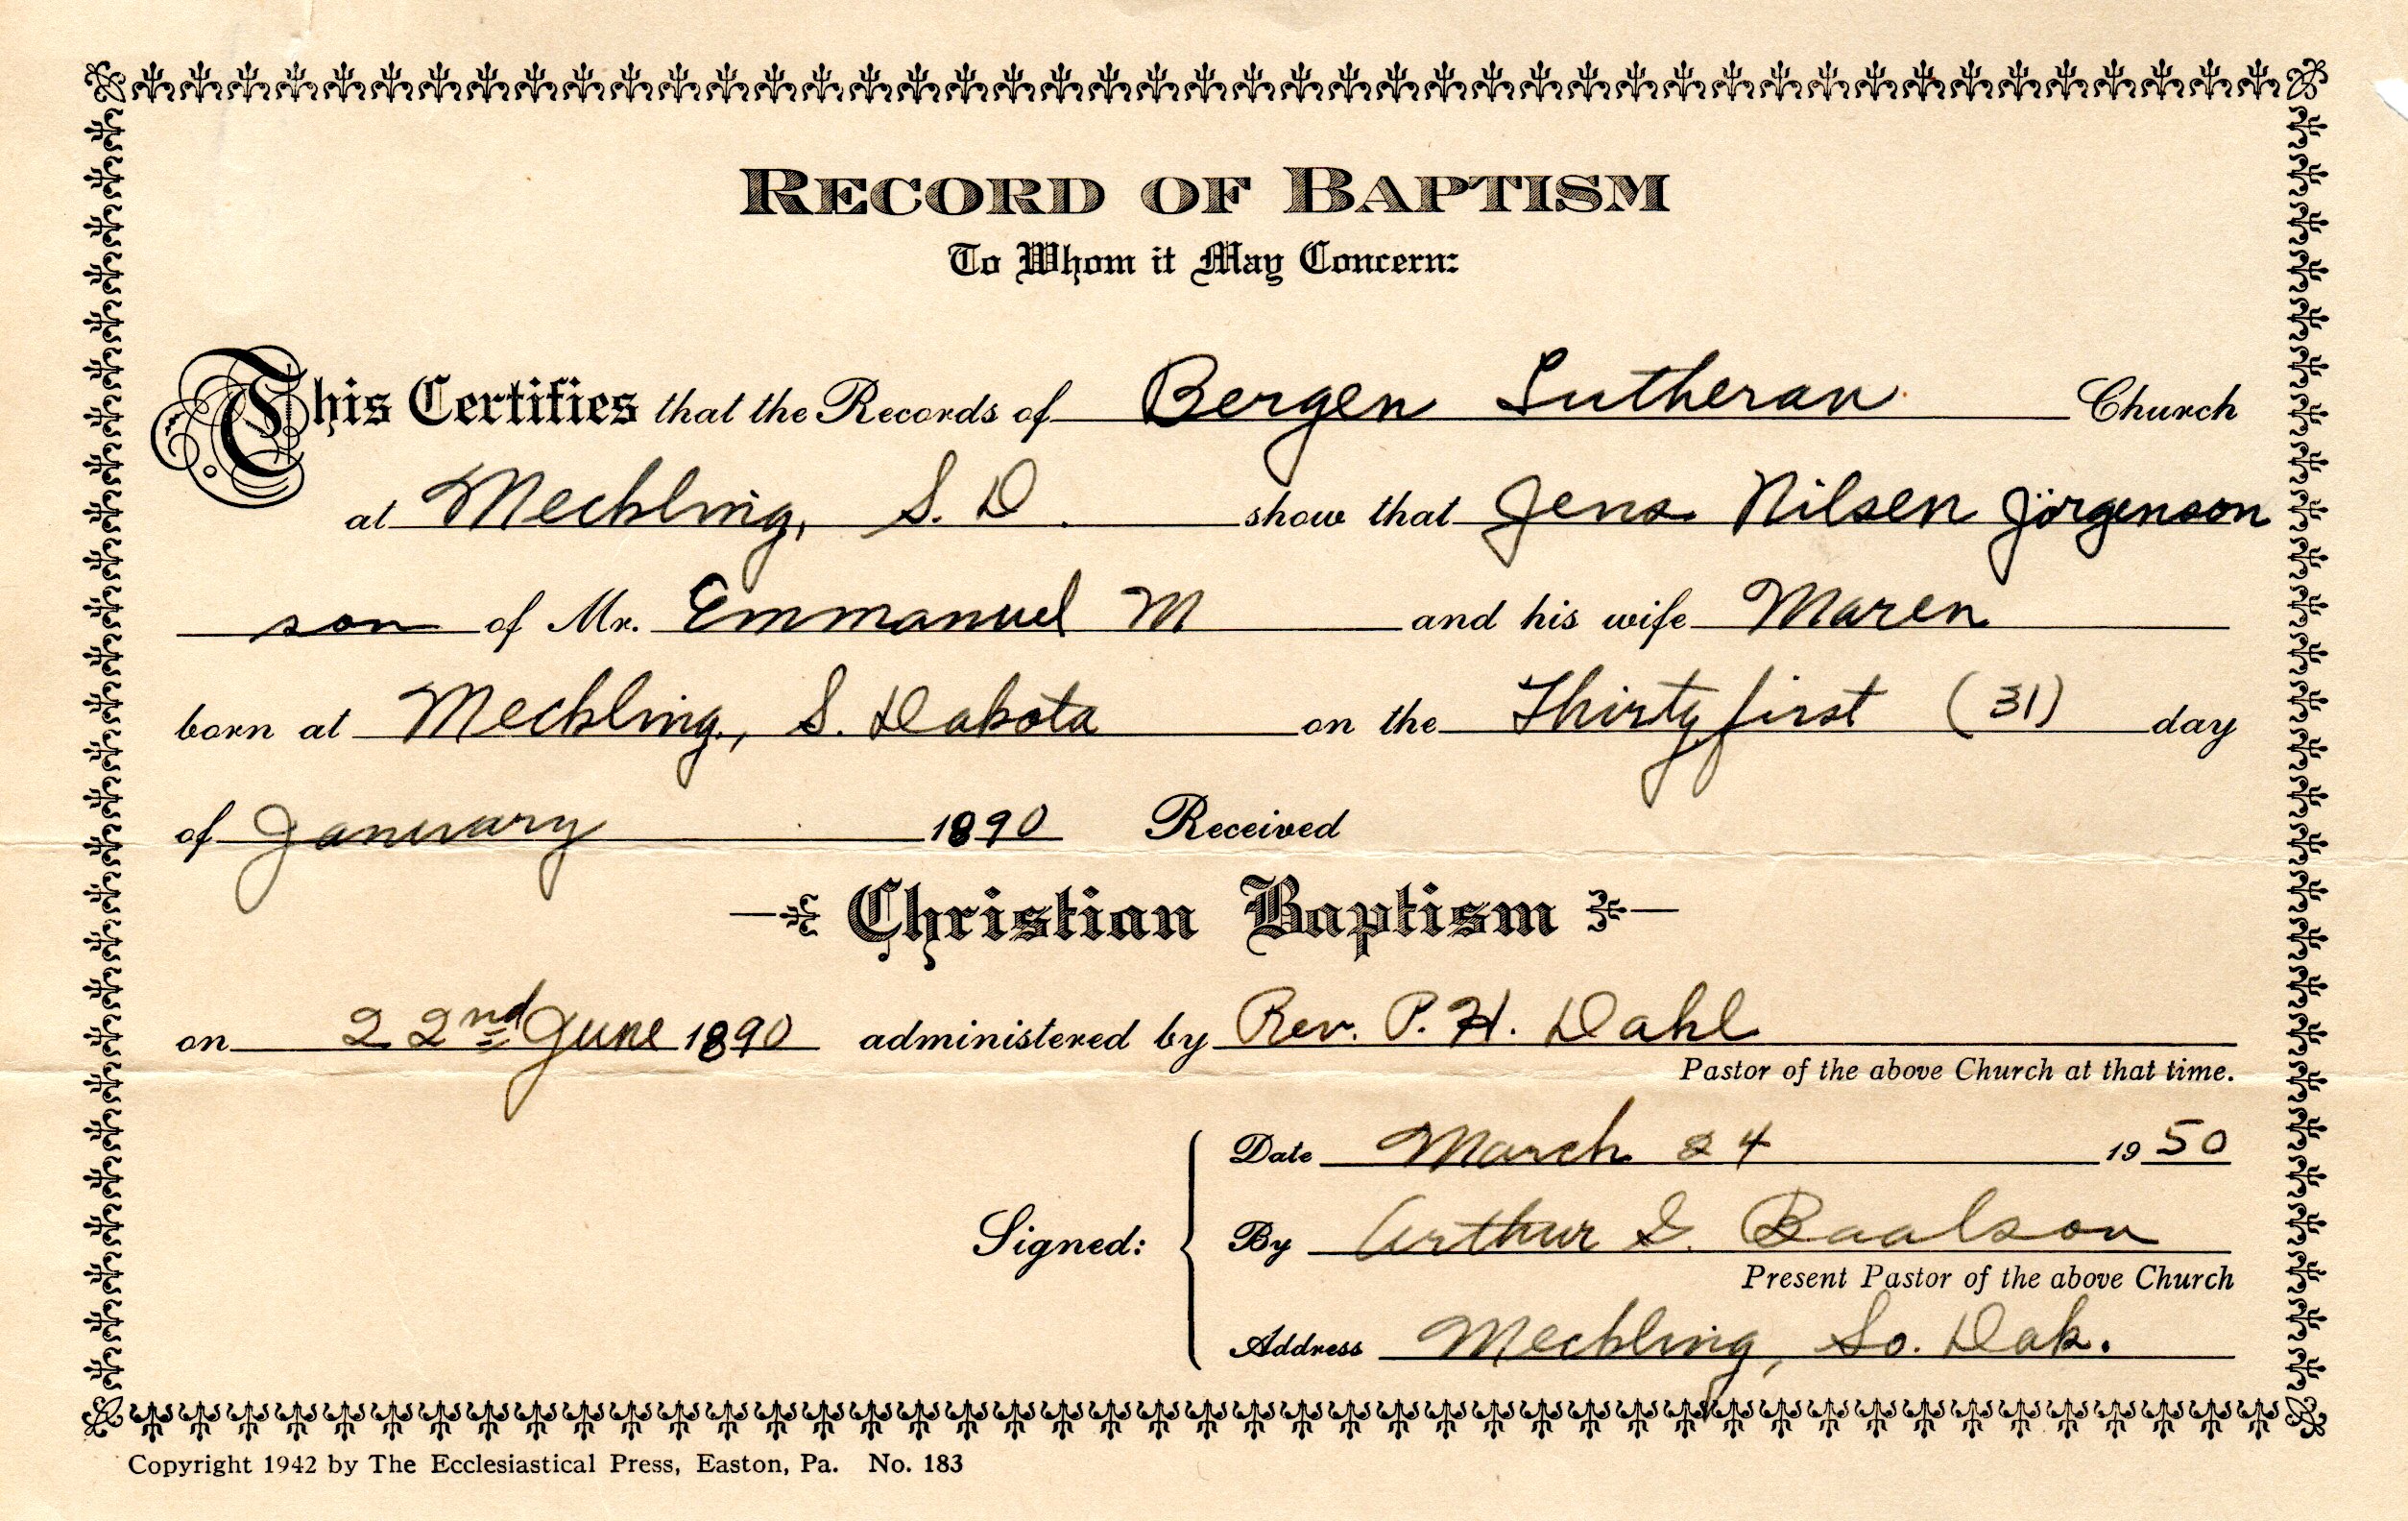 RECORD OF BAPTISM
To Whom it May Concern:
This Certifies that the Records of Bergen Lutheran Church
at Meckling, S. D. show that Jens Nilsen Jörgenson
son of Mr. Emmanuel M and his wife Maren
born at Meckling, S. Dakota on the Thirty first (31) day
of January 1890 Received
Christian Baptism
on 22nd June 1890 administered by Rev. P. H. Dahl
Pastor of the above Church at that time.
Date March 24 1950
Signed: By Arthur Baalson
Present Pastor of the above Church
Address Meckling, So. Dak.
Copyright 1942 by The Ecclesiastical Press, Easton, Pa. No. 183